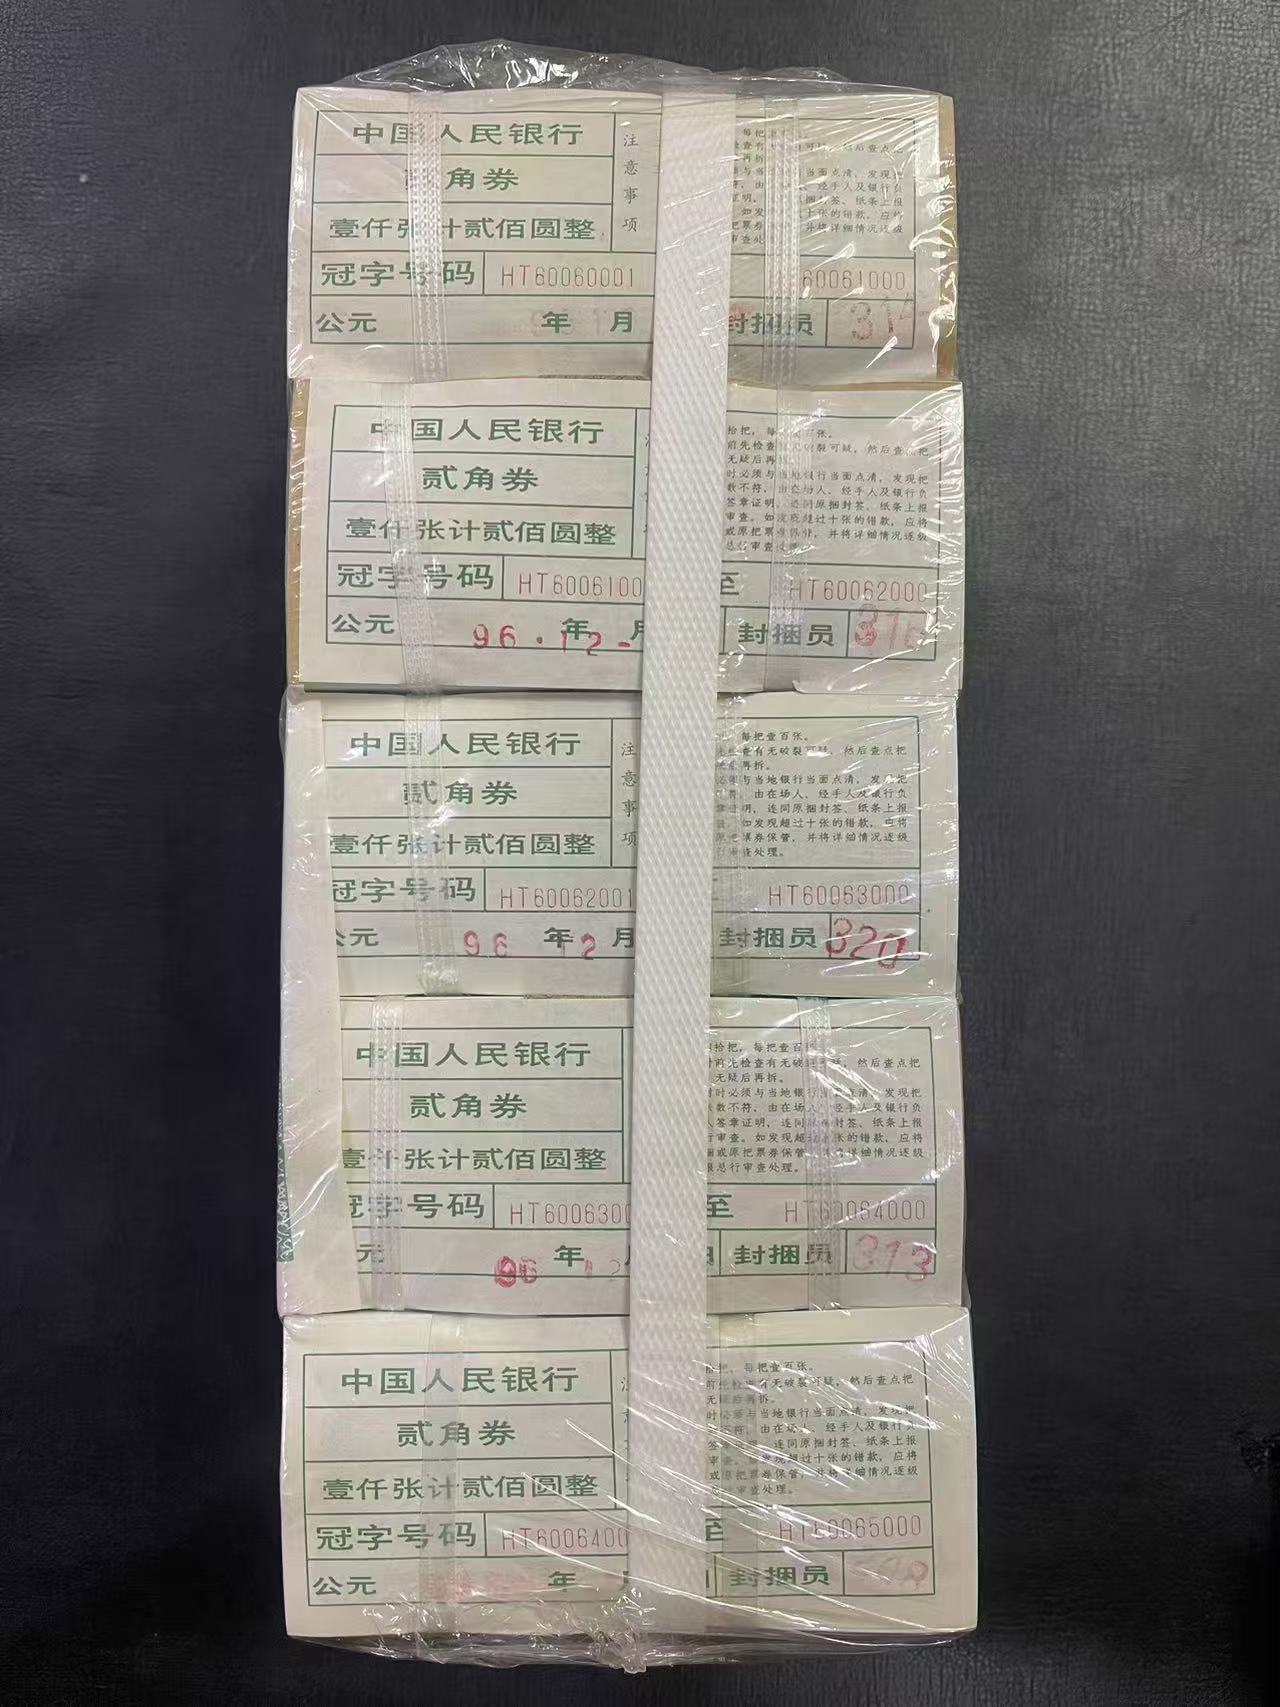 中国人民银行
贰角券
壹仟张计贰佰圆整
注意事项
每把壹
查有 可疑，然后查点把
再拆
与当 当面点清，发现把
由 经手人及银行负
证明， 纸条上报
如发 十张的错款，应将
把票券 并将详细情况逐级
审查处
冠字号码 HT60060001 60061000
公元 年 月 封捆员 314
中国人民银行
贰角券
壹仟张计贰佰圆整
拾把，每 百张。
前先检查有无破裂可疑，然后查点把
无疑后再拆
时必须与当地银行当面点清，发现把
数不符，由在场人、经手人及银行负
签章证明，连同原捆封签、纸条上报
审查。如发现超过十张的错款，应将
或原把票券保管，并将详细情况逐级
总行审查处理
冠字号码 HT6006100 至 HT60062000
公元 96.12- 年 月 封捆员 316
中国人民银行
贰角券
壹仟张计贰佰圆整
注意事项
每把壹百张。
查有无破裂可疑，然后查点把
再拆。
与当地银行当面点清，发现把
由在场人、经手人及银行负
明，连同原捆封签、纸条上报
如发现超过十张的错款，应将
票券保管，并将详细情况逐级
查处理。
冠字号码 HT60062001 HT60063000
公元 96 年 12 月 封捆员 320
中国人民银行
贰角券
壹仟张计贰佰圆整
拾把，每把壹百张
前先检查有无破裂可疑，然后查点把
无疑后再拆。
时必须与当地银行当面点清，发现把
数不符，由在场人、经手人及银行负
签章证明，连同原捆封签、纸条上报
审查。如发现超过十张的错款，应将
或原把票券保管，并将详细情况逐级
总行审查处理。
冠字号码 HT6006300 至 HT60064000
元 96 年 12 封捆员 313
中国人民银行
贰角券
壹仟张计贰佰圆整
拾把，每把壹百张。
前先检查有无破裂可疑，然后查点把
无疑后再拆。
时必须与当地银行当面点清，发现把
不符，由在场人、经手人及银行负
签章证明，连同原捆封签、纸条上报
审查。如发现超过十张的错款，应将
或原把票券保管，并将详细情况逐级
审查处理。
冠字号码 HT6006400 至 HT60065000
公元 年 封捆员